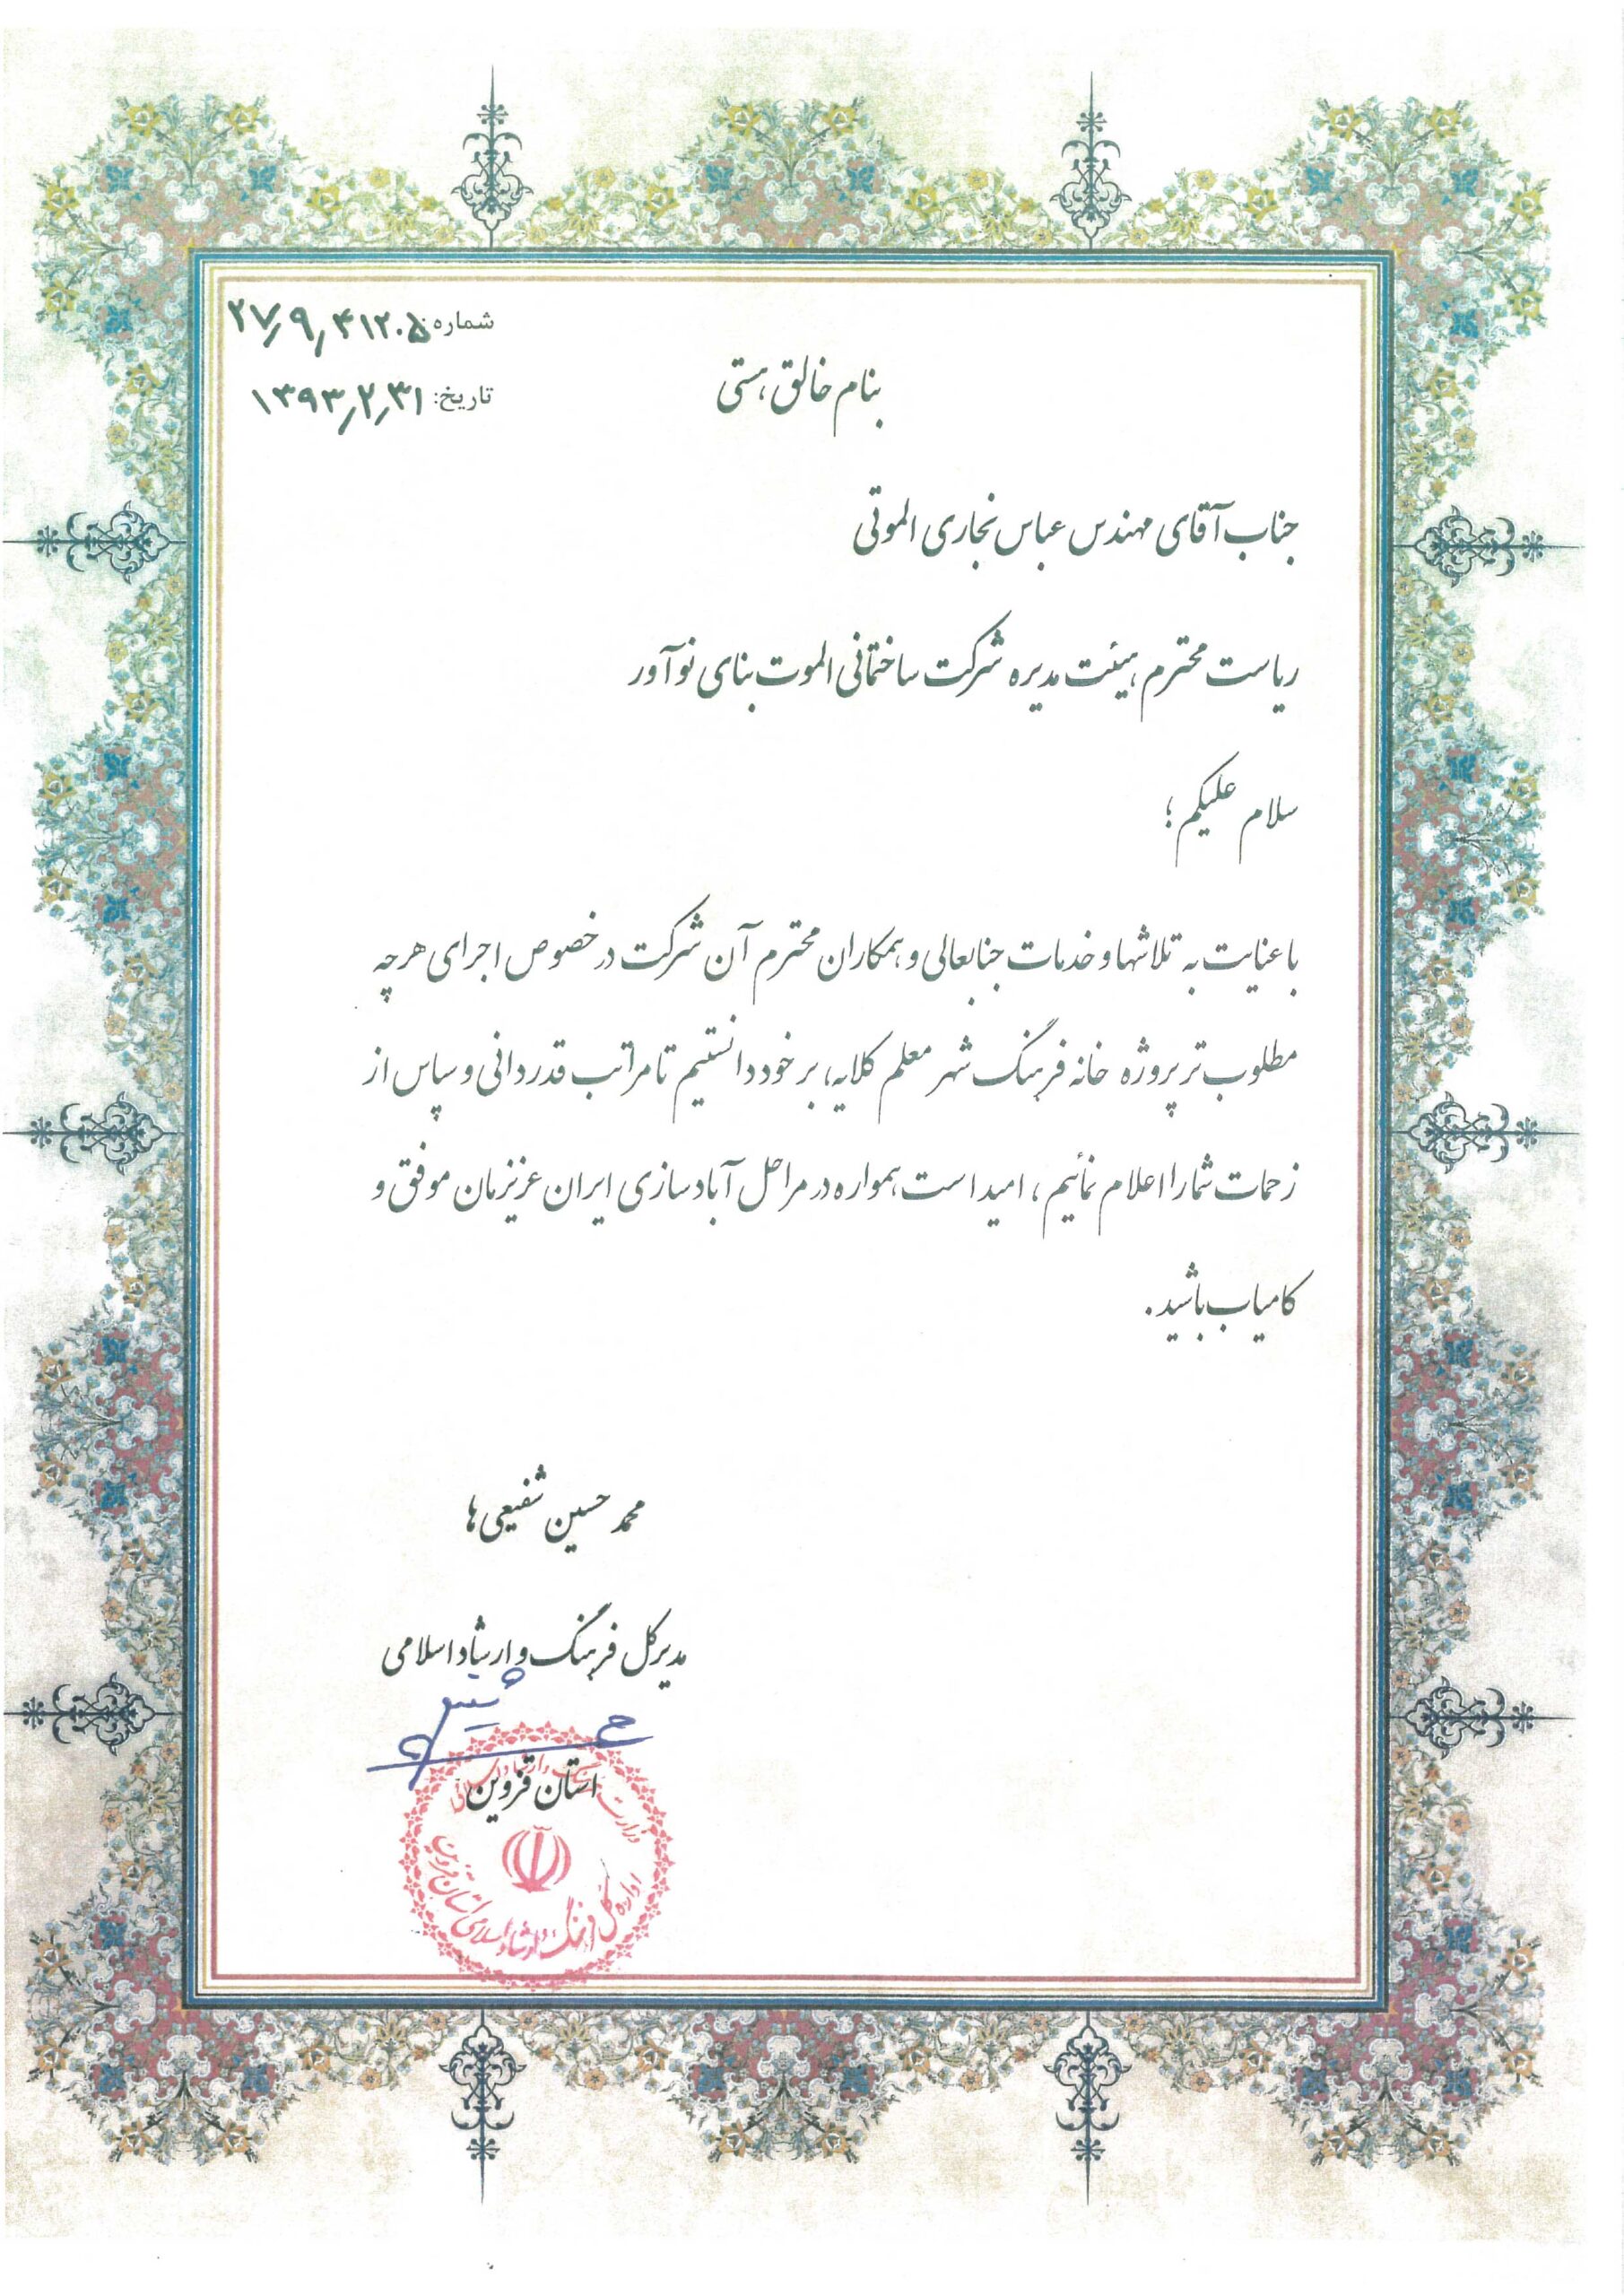 شماره: ۲۷٫۹٫۴۱۲۰۵
تاریخ: ۱۳۹۳٫۲٫۳۱
بنام خالق هستی
جناب آقای مهندس عباس نجاری الموتی
ریاست محترم هیئت مدیره شرکت ساختمانی الموت بنای نوآور
سلام علیکم؛
با عنایت به تلاشها و خدمات جنابعالی و همکاران محترم آن شرکت در خصوص اجرای هرچه
مطلوب تر پروژه خانه فرهنگ شهر معلم کلایه، بر خود دانستیم تا مراتب قدردانی و سپاس از
زحمات شما را اعلام نمائیم، امید است همواره در مراحل آبادسازی ایران عزیزمان موفق و
کامیاب باشید.
محمد حسین شفیعی ها
مدیرکل فرهنگ و ارشاد اسلامی
استان قزوین
وزارت فرهنگ و ارشاد اسلامی
اداره کل فرهنگ و ارشاد اسلامی استان قزوین